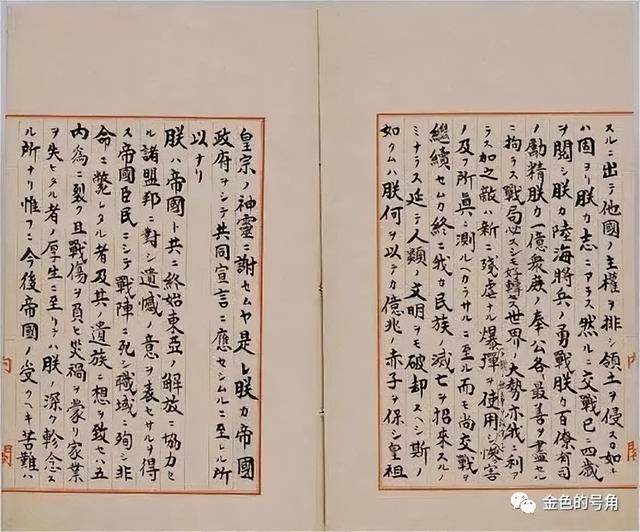 スルニ出テ他國ノ主權ヲ排シ領土ヲ侵スカ如キ
ハ固ヨリ朕カ志ニアラス然ルニ交戰已ニ四歳
ヲ閲シ朕カ陸海將兵ノ勇戰朕カ百僚有司
ノ勵精朕カ一億衆庶ノ奉公各〻最善ヲ盡セル
ニ拘ラス戰局必スシモ好轉セス世界ノ大勢亦我ニ利ア
ラス加之敵ハ新ニ殘虐ナル爆彈ヲ使用シ惨害
ノ及フ所眞ニ測ルヘカラサルニ至ル而モ尚交戰ヲ
繼續セムカ終ニ我カ民族ノ滅亡ヲ招來スルノ
ミナラス延テ人類ノ文明ヲモ破却スヘシ斯ノ
如クムハ朕何ヲ以テカ億兆ノ赤子ヲ保シ皇祖
内閣
皇宗ノ神靈ニ謝セムヤ是レ朕カ帝國
政府ヲシテ共同宣言ニ應セシムルニ至レル所
以ナリ
朕ハ帝國ト共ニ終始東亞ノ解放ニ協力セ
ル諸盟邦ニ對シ遺憾ノ意ヲ表セサルヲ得
ス帝國臣民ニシテ戰陣ニ死シ職域ニ殉シ非
命ニ斃レタル者及其ノ遺族ニ想ヲ致セハ五
内爲ニ裂ク且戰傷ヲ負ヒ災禍ヲ蒙リ家業
ヲ失ヒタル者ノ厚生ニ至リテハ朕ノ深ク軫念ス
ル所ナリ惟フニ今後帝國ノ受クヘキ苦難ハ
内閣
金色的号角